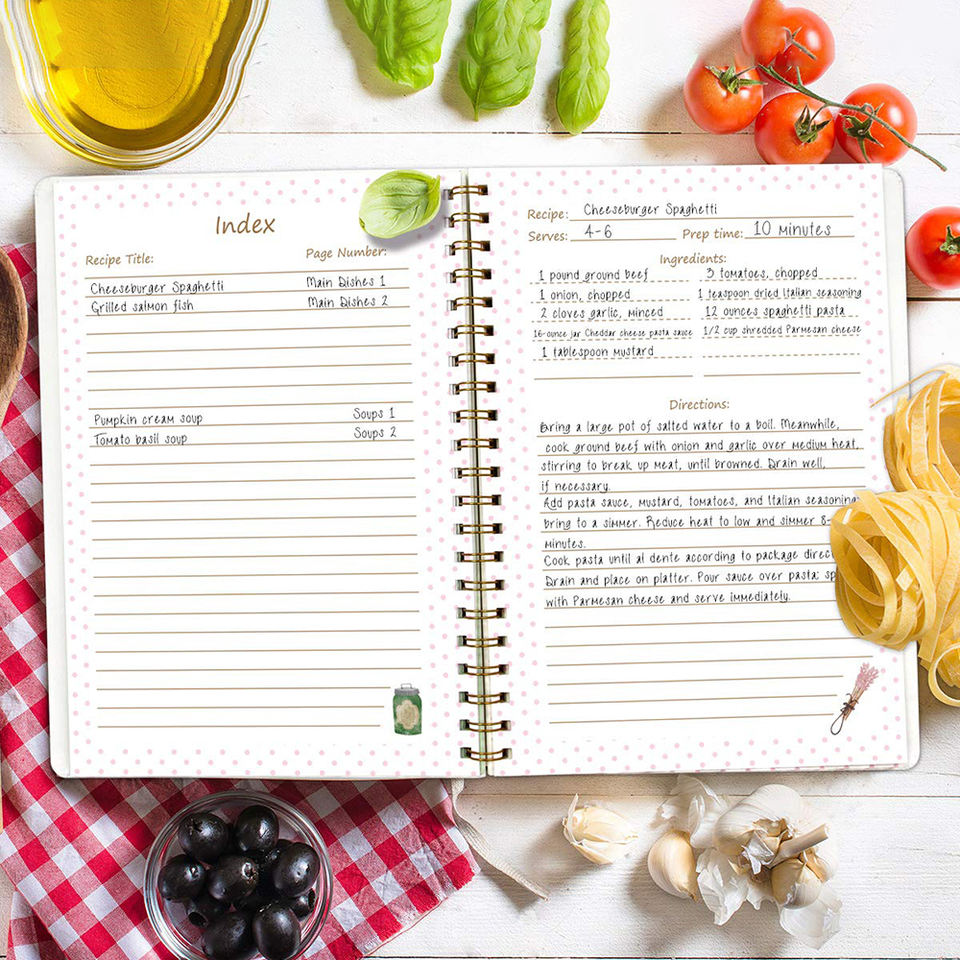 Index
Recipe Title: Page Number:
Cheeseburger Spaghetti Main Dishes 1
Grilled salmon fish Main Dishes 2
Pumpkin cream soup Soups 1
Tomato basil soup Soups 2
Recipe: Cheeseburger Spaghetti
Serves: 4-6 Prep time: 10 minutes
Ingredients:
1 pound ground beef 3 tomatoes, chopped
1 onion, chopped 1 teaspoon dried Italian seasoning
2 cloves garlic, minced 12 ounces spaghetti pasta
16-ounce jar Cheddar cheese pasta sauce 1/2 cup shredded Parmesan cheese
1 tablespoon mustard
Directions:
Bring a large pot of salted water to a boil. Meanwhile,
cook ground beef with onion and garlic over medium heat,
stirring to break up meat, until browned. Drain well,
if necessary.
Add pasta sauce, mustard, tomatoes, and Italian seasoning
bring to a simmer. Reduce heat to low and simmer 8-
minutes.
Cook pasta until al dente according to package
Drain and place on platter. Pour sauce over pasta;
with Parmesan cheese and serve immediately.